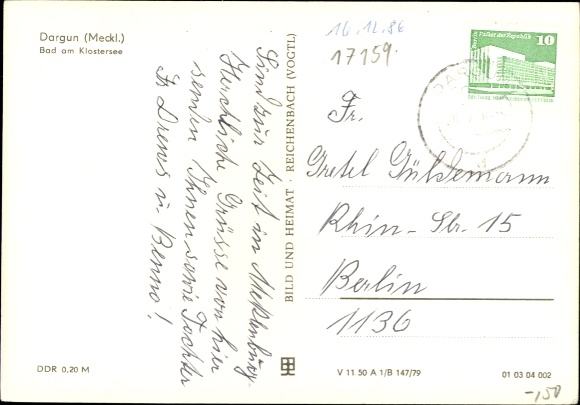 Dargun (Meckl.)
Bad am Klostersee
Sind zur Zeit in Meklenburg.
Herzliche Grüsse von hier
senden Ihnen sowie Tochter
Fr. Drews u. Benno!
BILD UND HEIMAT · REICHENBACH (VOGTL)
16.12.86
17159.
Berlin, Palast der Republik
10
DARGUN
Fr.
Gretel Güldemann
Rhin-Str. 15
Berlin
1136
DDR 0,20 M
V 11 50 A 1/B 147/79
01 03 04 002
-,150